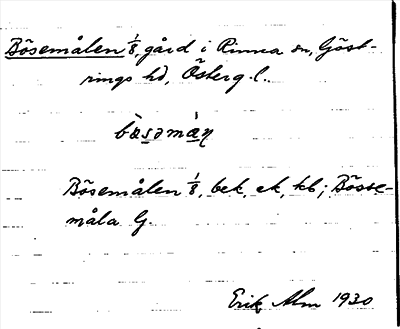 Bösemålen 1/8, gård i Rinna sn, Göst-
rings hd, Österg. l.
Bösemålen 1/8, bek, ek, kb; Bösse-
måla G.
Erik Alm 1930